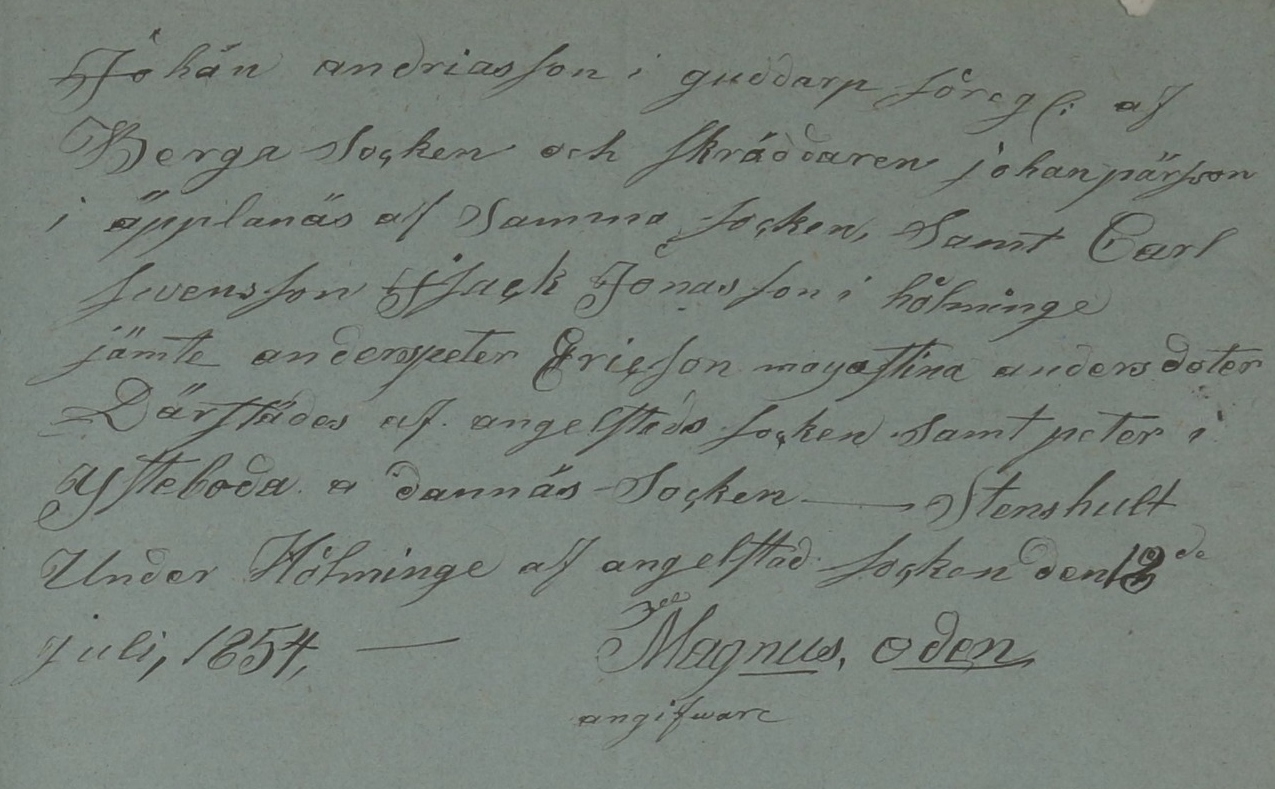 Johan andriasson i guddarp föreg (: af
Berga Socken och skräddaren johan pärsson
i äpplanäs af Samma socken, Samt Carl
svensson Jsack Jonasson i hölminge
jämte anderspeter Ericsson mayastina andersdoter
Därstädes af. angelstads socken samt peter i
ysteboda a dannäs Socken — Stenshult
Under Hölminge af angelstad socken den 12de
juli, 1854, —
Magnus, oden
angifware